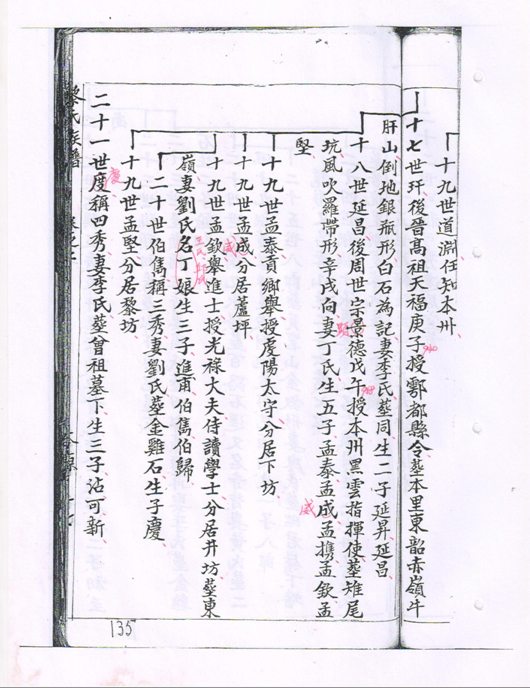 十九世道淵任知本州
十七世玕後晉高祖天福庚子授鄠都縣令塟本里東韶赤嶺牛
肝山倒地銀瓶形白石為記妻李氏塟同生二子延昇延昌
十八世延昌後周世宗景德戊午授本州黑雲指揮使塟雉尾
坑風吹羅帶形辛戌向妻丁氏生五子孟泰孟成孟携孟欽孟
堅
十九世孟泰貢鄉舉授虔陽太守分居下坊
十九世孟成分居蘆坪
十九世孟欽舉進士授光祿大夫侍讀學士分居井坊塟東
嶺妻劉氏名丁娘生三子進甫伯儁伯歸
二十世伯儁稱三秀妻劉氏塟金雞石生子慶
十九世孟堅分居黎坊
二十一世度稱四秀妻李氏塟曾祖墓下生三子沾可新
黎氏族譜
慶
威
顯
威
135